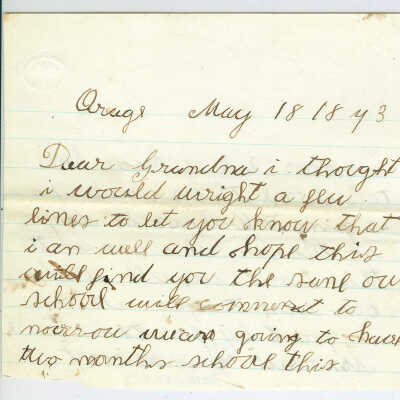 Orage May 18 1873
Dear Grandma i thought
i would wright a few
lines to let you know that
i am well and hope this
will find you the same our
school will commenst to
morrow we are going to have
two months school this